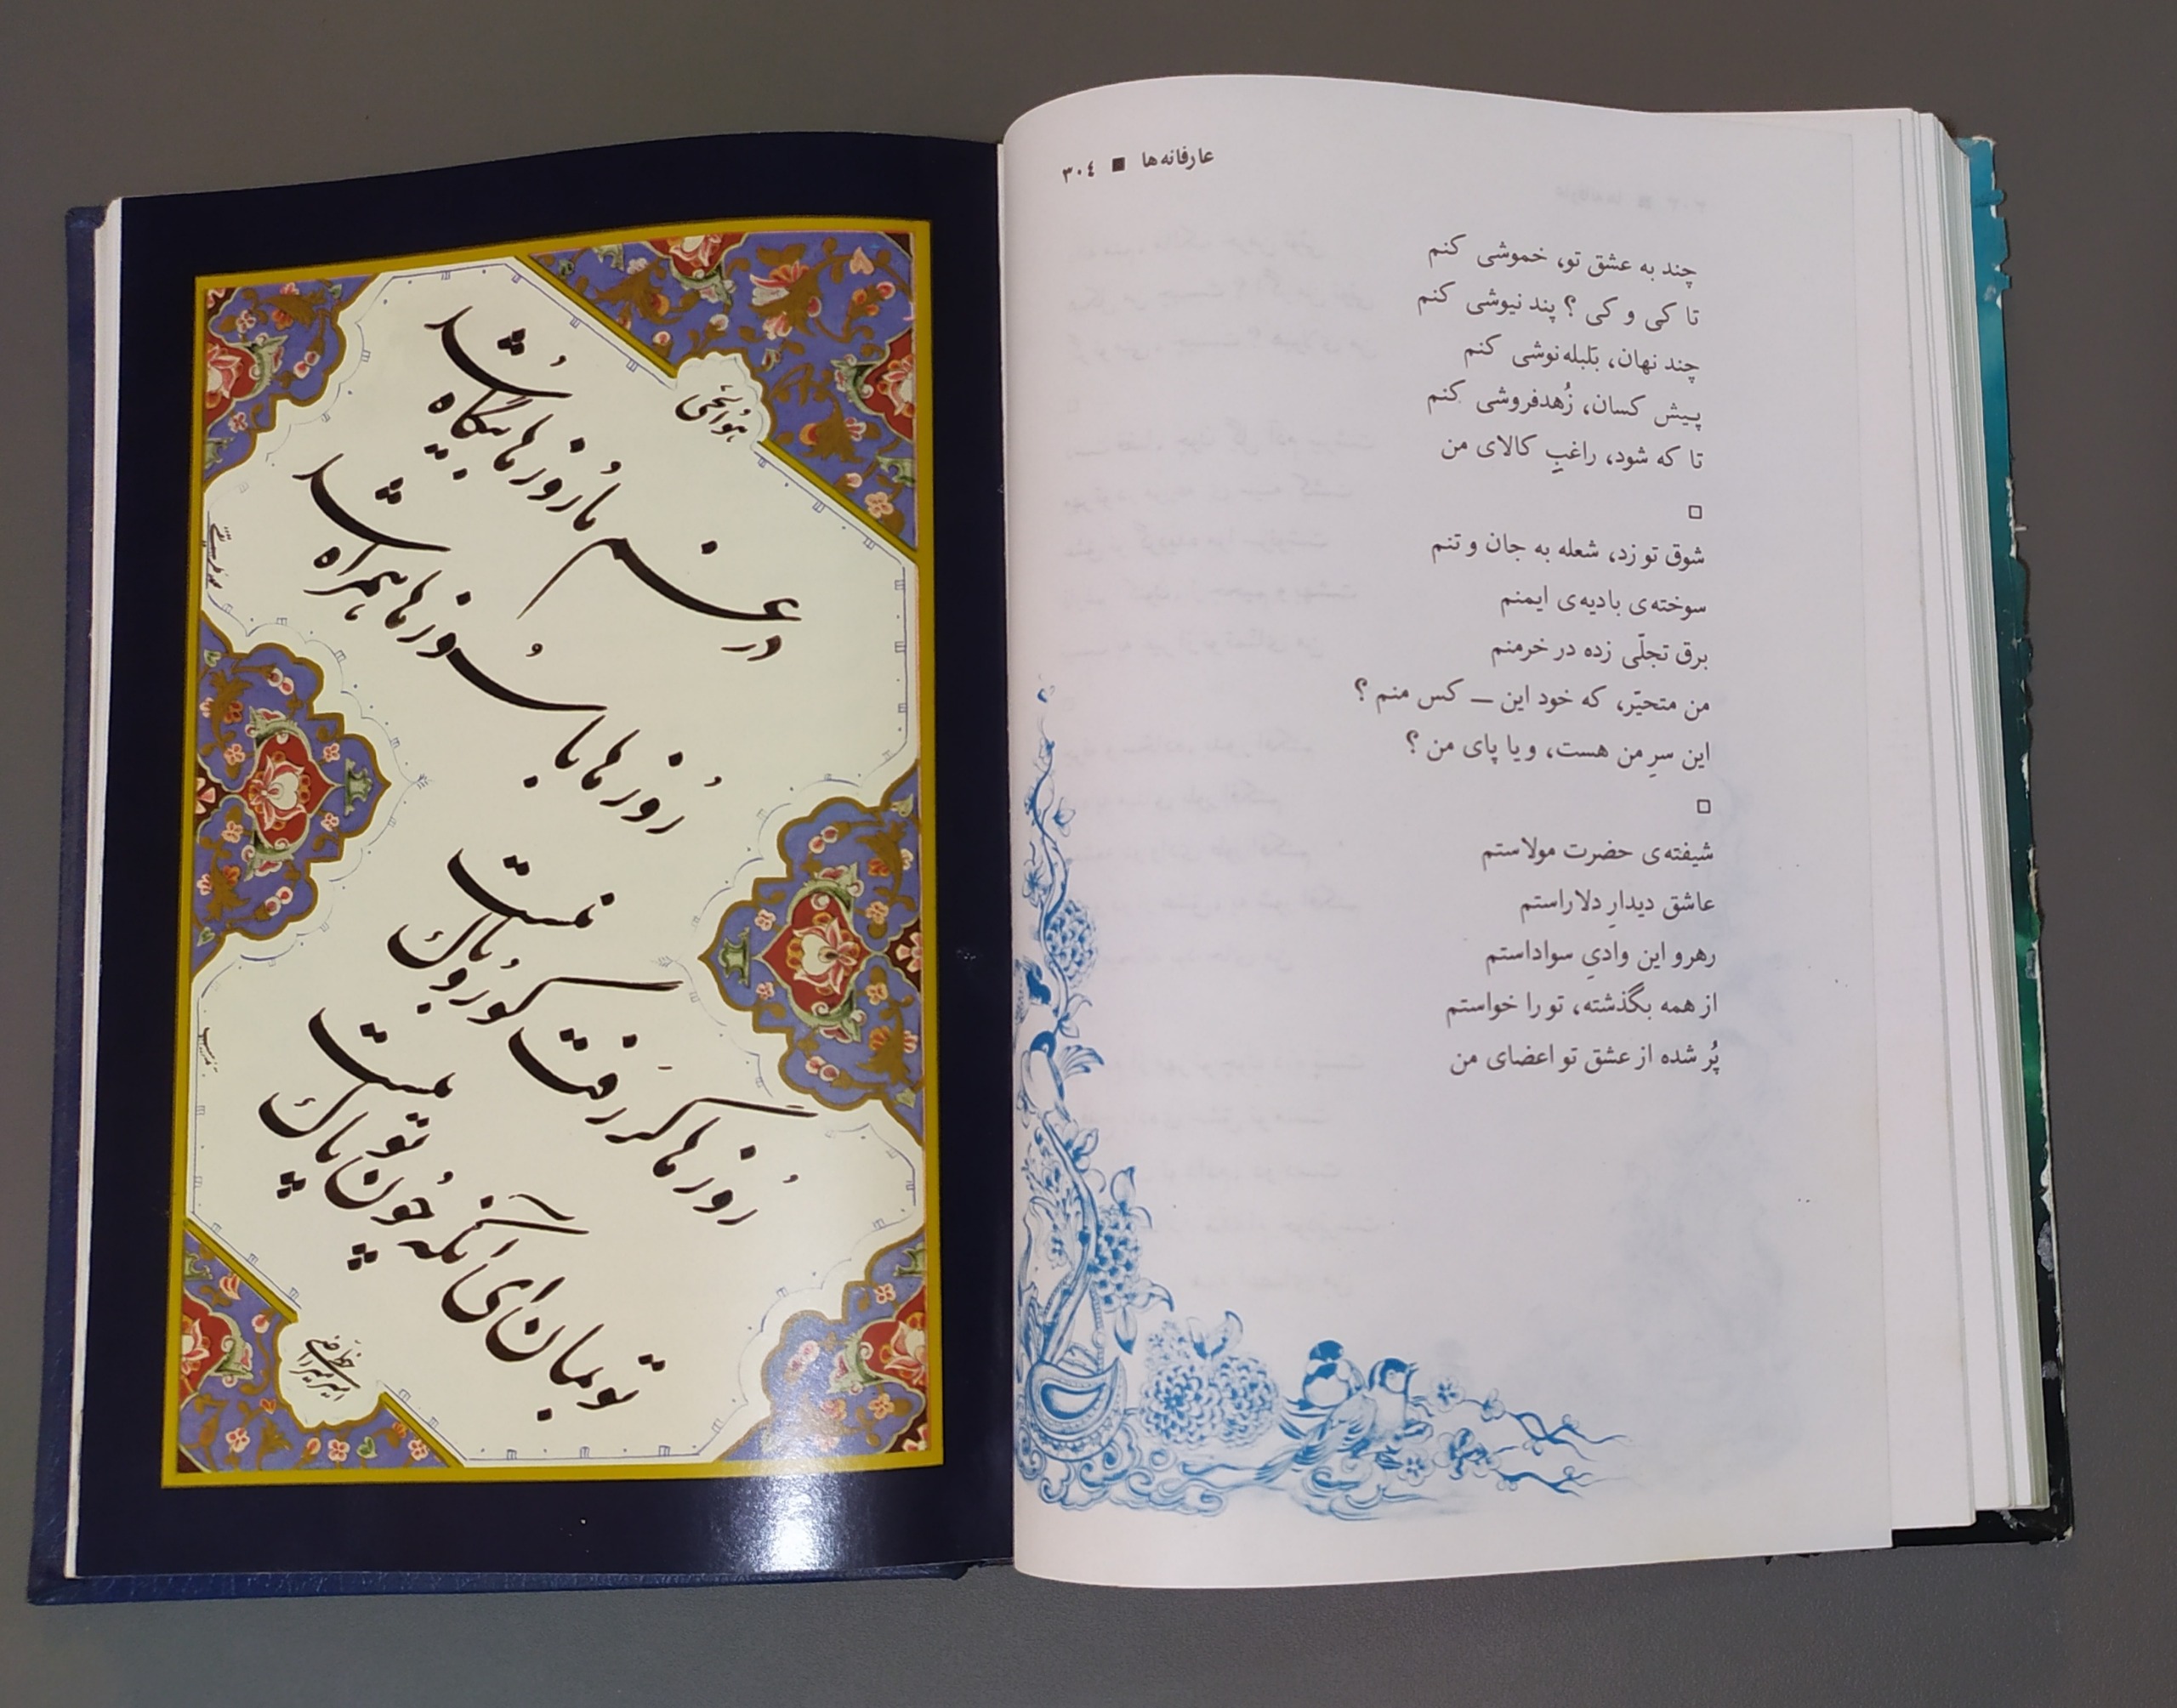 عارفانه‌ها ■ ۳۰٤
چند به عشق تو، خموشی کنم
تا کی و کی ؟ پند نیوشی کنم
چند نهان، بَلبله‌نوشی کنم
پیش کسان، زُهدفروشی کنم
تا که شود، راغبِ کالای من
□
شوق تو زد، شعله به جان و تنم
سوخته‌ی بادیه‌ی ایمنم
برق تجلّی زده در خرمنم
من متحیّر، که خود این — کس منم ؟
این سرِ من هست، و یا پای من ؟
□
شیفته‌ی حضرت مولاستم
عاشق دیدارِ دلاراستم
رهرو این وادیِ سوداستم
از همه بگذشته، تو را خواستم
پُر شده از عشق تو اعضای من
هوالحی
در غم ما روزها بیگاه شد
روزها با سوزها همراه شد
روزها گر رفت گو رو باک نیست
تو بمان ای آنکه چون تو پاک نیست